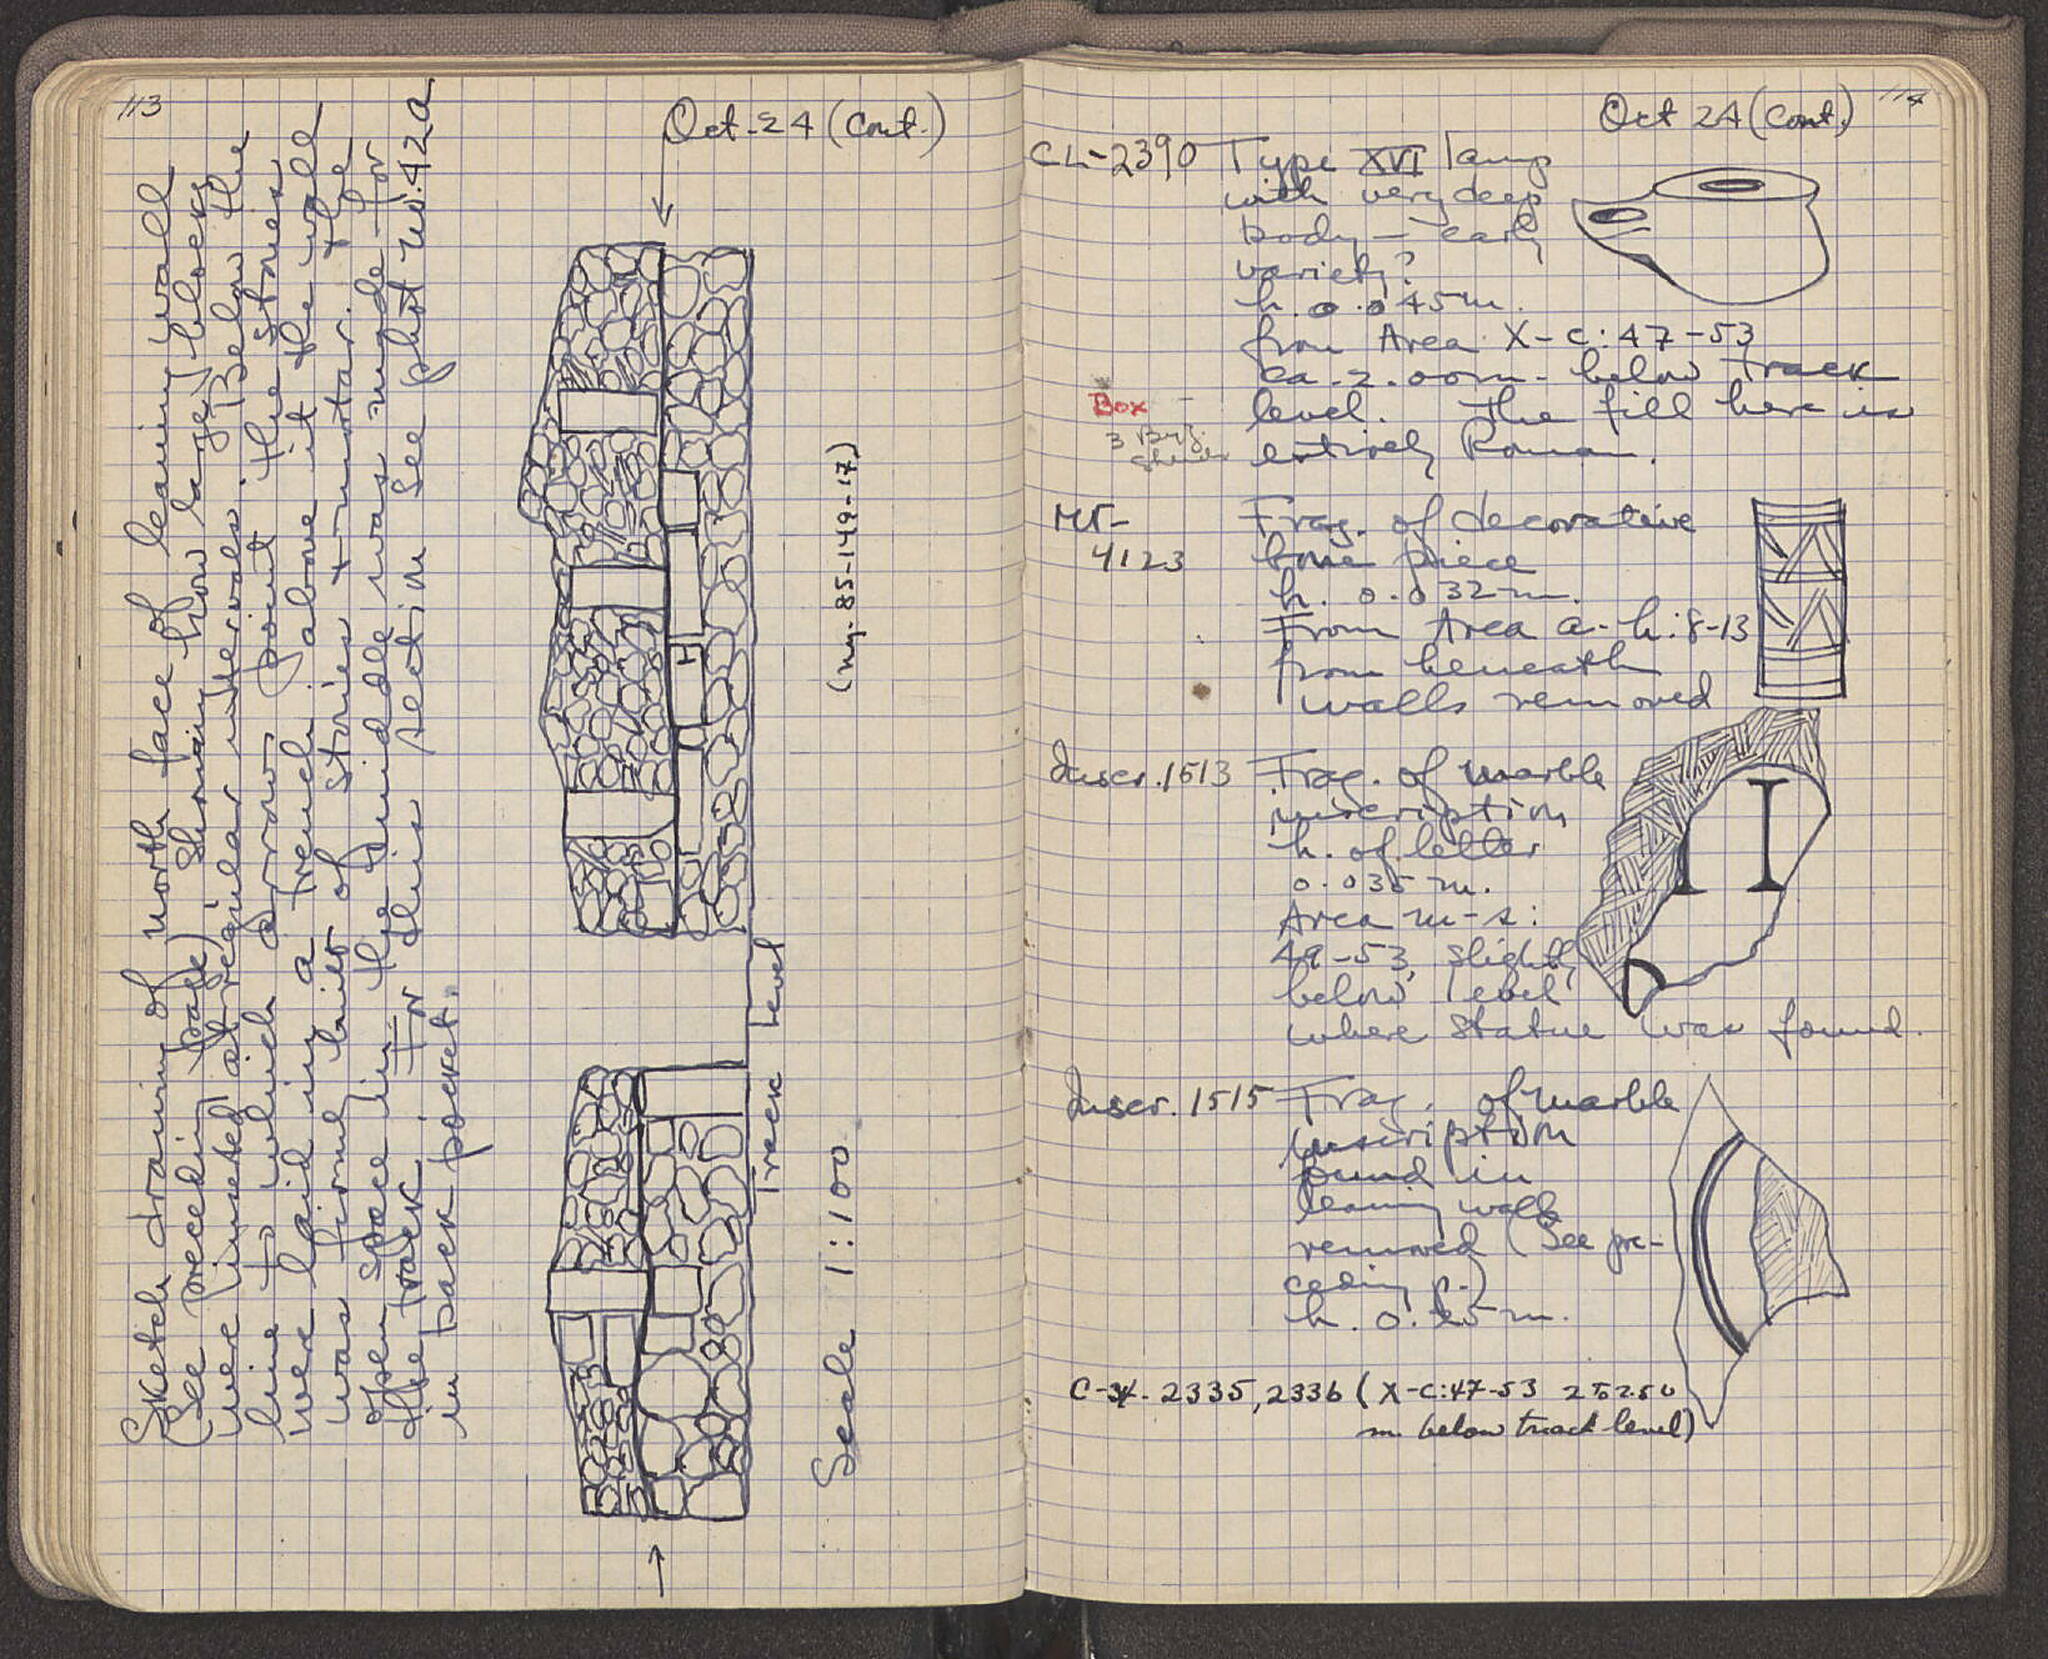 113
Oct. 24 (Cont.)
Sketch drawing of north face of leaning wall
(See preceding page) showing how large blocks
were inserted at regular intervals. Below the
line to which arrows point the stones
were laid in a trench. above it the wall
was formed built of stones + mortar. the
open space in the middle was made for
the track. For this section see phot W. 42a
in back pocket.
(neg. 85-149-17)
Track level
Scale 1:100
114
Oct 24 (Cont.)
CL-2390 Type XVI lamp
with very deep
body — early
variety?
h. 0.045 m.
from Area X-C:47-53
ca. 2.00 m. below track
level. The fill here is
entirely Roman.
Box
3 Byz.
MF-
4123
Frag. of decorative
bone piece
h. 0.032 m.
From Area a-h:8-13
from beneath
walls removed
Inscr. 1513 Frag. of marble
inscription
h. of letter
0.035 m.
Area m-s:
49-53, slightly
below level
where statue was found.
Inscr. 1515 Frag. of marble
inscription
found in
leaning wall
removed (See pre-
ceding p.)
h. 0.15 m.
2335, 2336 (X-C:47-53 2 to 2.50
m. below track level)